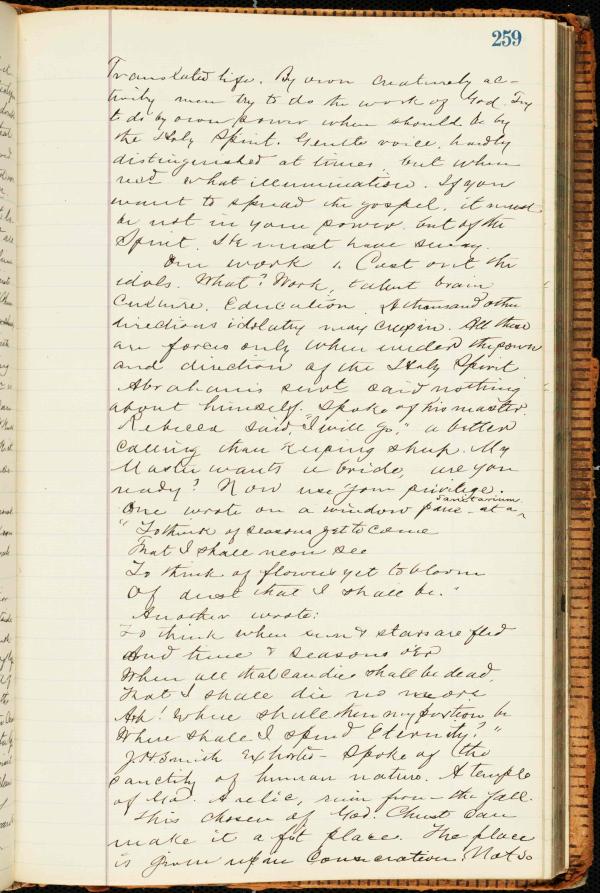 259
Translated life. By own creaturely ac-
tivity men try to do the work of God. Try
to do by own power when should be by
the Holy Spirit. Gentle voice, hardly
distinguished at times, but when
rec'd what illumination. If you
want to spread the gospel, it must
be not in your power, but of the
Spirit. He must have sway.
Our work 1. Cast out the
idols. What? Work, talent brain
Culture, Education. A thousand other
directions idolatry may creep in. All these
are forces only when under the power
and direction of the Holy Spirit
Abraham's servt. said nothing
about himself. Spoke of his master.
Rebecca said, "I will go." a better
calling than keeping sheep. My
Master wants a bride, are you
ready? Now use your privilege.
One wrote on a window pane - at a
Sanitarium
"To think of seasons yet to come
That I shall never see
To think of flowers yet to bloom
Of dust that I shall be."
Another wrote:
To think when sun & stars are fled
And time & seasons o'er
When all that can die shall be dead,
That I shall die no more
Ah! Where shall then my portion be
Where shall I spend Eternity?"
J.H. Smith Exhorted - Spoke of the
sanctity of human nature. A temple
of God. A relic, ruin from the fall.
This chosen of God. Christ can
make it a fit place. The place
is given up in Consecration. Not so